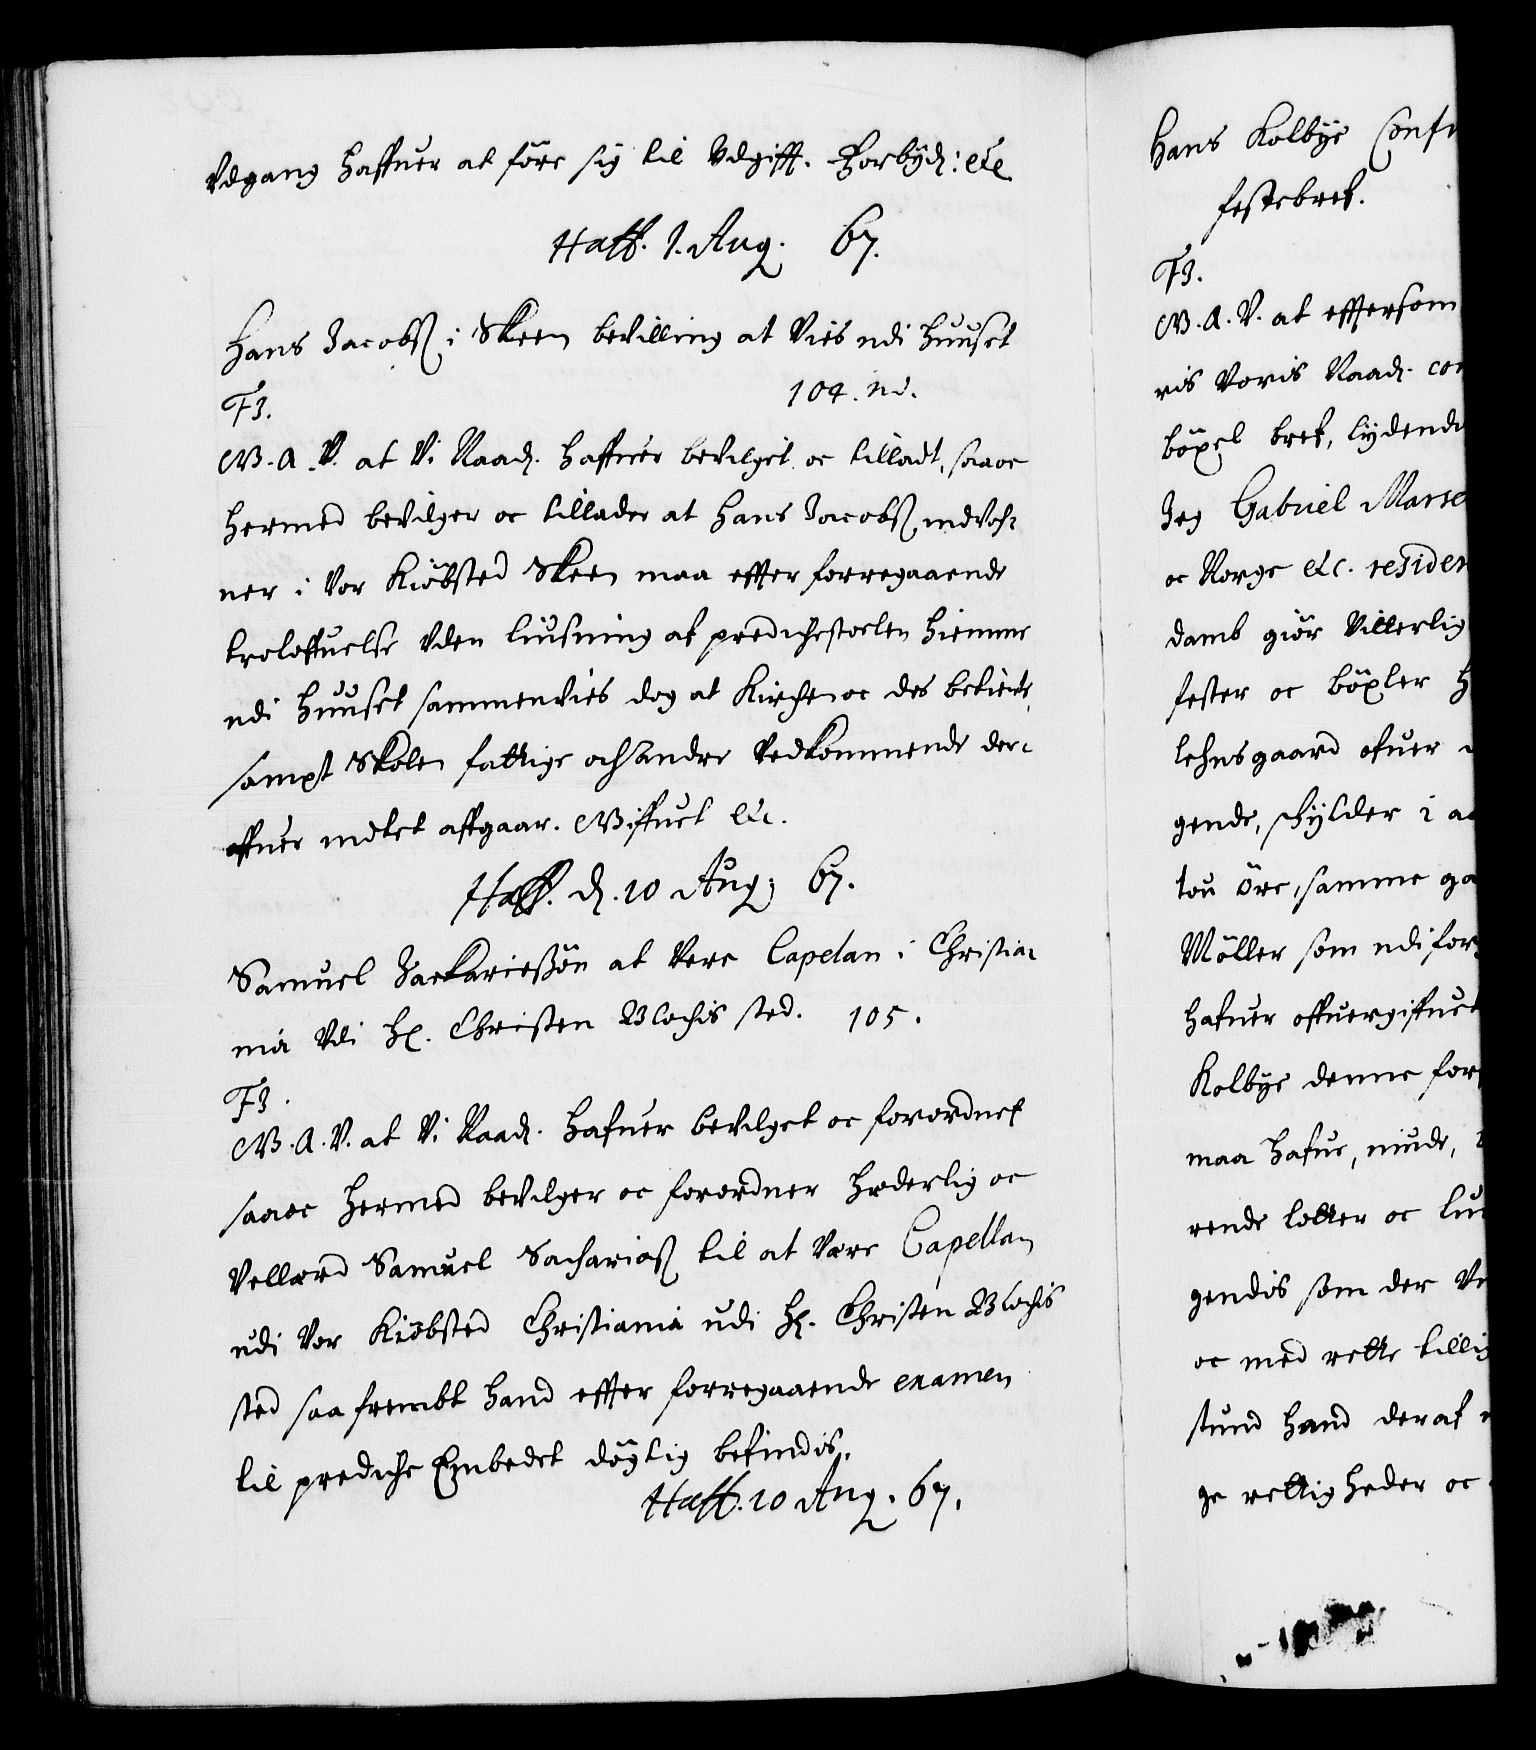 Udgang haffuer at føre sig til Udgifft. Forbydd: etc
Haff. 1. Aug. 67.
Hans Jacobsß i Skeen bevilling at Vies udi huuset
104. nd.
F3.
W. A. V. at Vi Naad. haffuer bevilget oc tilladt, saa oc
hermed bevilger oc tillader at Hans Jacobsß indvoh-
ner i Vor Kiøbsted Skeen maa effter forregaaende
troloffuelse Uden liusning af predichestoelen hiemme
udi huuset sammenvies dog at Kirchen oc des betiente,
sampt Skolen fattige och andre Vedkommende der-
offuer intet affgaar. Wiffuet etc.
Haff. d. 10 Aug: 67.
Samuel Zackariesßøn at Vere Capelan i Christia-
nia Udi Hr. Christen Blochis sted. 105.
F3.
W. A. V. at Vi Naad. hafuer bevilget oc forordnet
saa oc hermed bevilger oc forordner hæderlig oc
Vellærd Samuel Sachariasß til at Være Capellan
udi Vor Kiøbsted Christiania udi Hr. Christen Blochis
sted saafrembt hand effter forregaaende examen
til prediche Embedet døgtig befindis.
Haff. 10 Aug. 67.
Hans Kolbye Conf
festebref.
F3.
W. A. V. at efftersom
ris Voris Raad. co
bøxel bref, lydende
Jeg Gabriel Marse
oc Norge etc. resider
damb giør Vitterlig
fester oc bøxler H
lehnsgaard ofuer
gende, skylder i a
tou øre, samme ga
Møller som udi for
hafuer offuergiffuet
Kolbye denne for
maa hafue, niude,
rende lotter oc lu
gendis som der V
oc med rette tillig
stund hand deraf
ge rettigheder oc